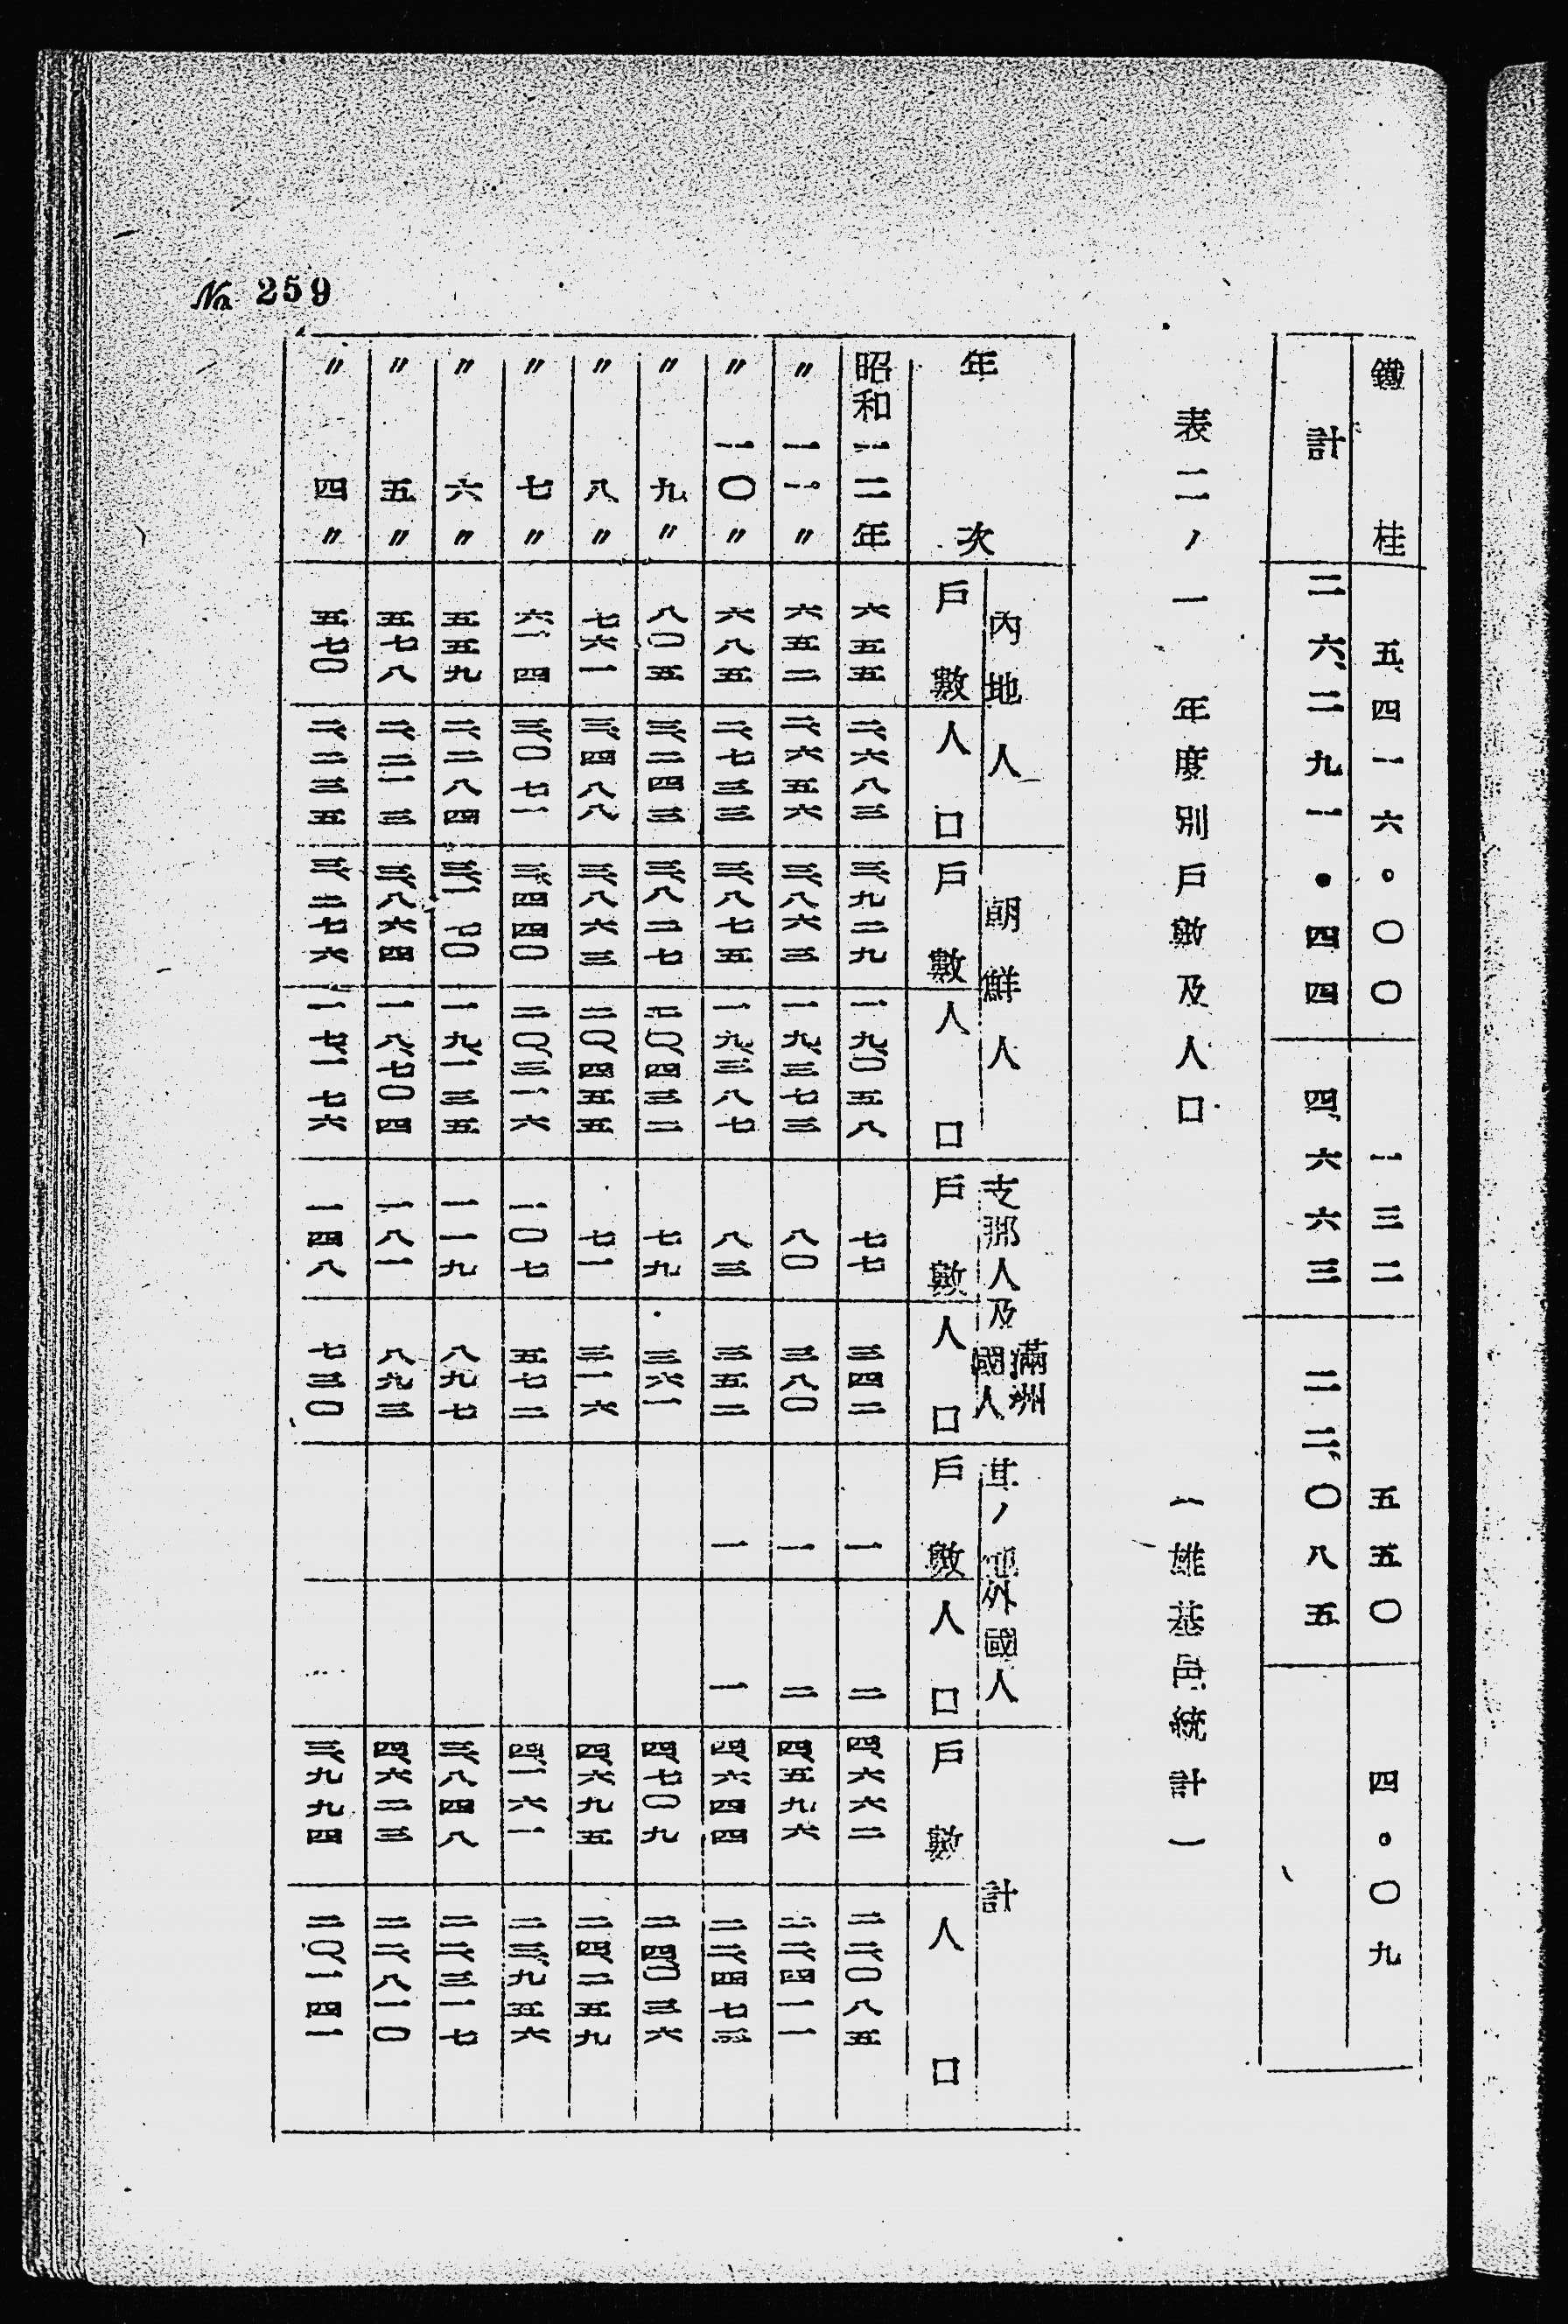 鐵桂 五、四一六。〇〇 一三二 五五〇 四。〇九
計 二六、二九一・四四 四、六六三 二二、〇八五
表二ノ一 年度別戶數及人口 (雄基邑統計)
年次 內地人 朝鮮人 支那人及滿洲國人 其ノ他外國人 計
戶數 人口 戶數 人口 戶數 人口 戶數 人口 戶數 人口
昭和一二年 六五五 二、六八三 三、九二九 一九、〇五八 七七 三四二 一 二 四、六六二 二二、〇八五
〃一一〃 六五二 二、六五六 三、八六三 一九、三七三 八〇 三八〇 一 二 四、五九六 二二、四一一
〃一〇〃 六八五 二、七三三 三、八七五 一九、三八七 八三 三五二 一 一 四、六四四 二二、四七三
〃九〃 八〇五 三、二四三 三、八二七 二〇、四三二 七九 三六一 四、七〇九 二四、〇三六
〃八〃 七六一 三、四八八 三、八六三 二〇、四五五 七一 三一六 四、六九五 二四、二五九
〃七〃 六一四 三、〇七一 三、四四〇 二〇、三一六 一〇七 五七二 四、一六一 二三、九五六
〃六〃 五五九 二、二八四 三、一七〇 一九、一三五 一一九 八九七 三、八四八 二二、三一七
〃五〃 五七八 二、二一三 三、八六四 一八、七〇四 一八一 八九三 四、六二三 二二、八一〇
〃四〃 五七〇 二、二三五 三、二七六 一七、一七六 一四八 七三〇 三、九九四 二〇、一四一
№ 259